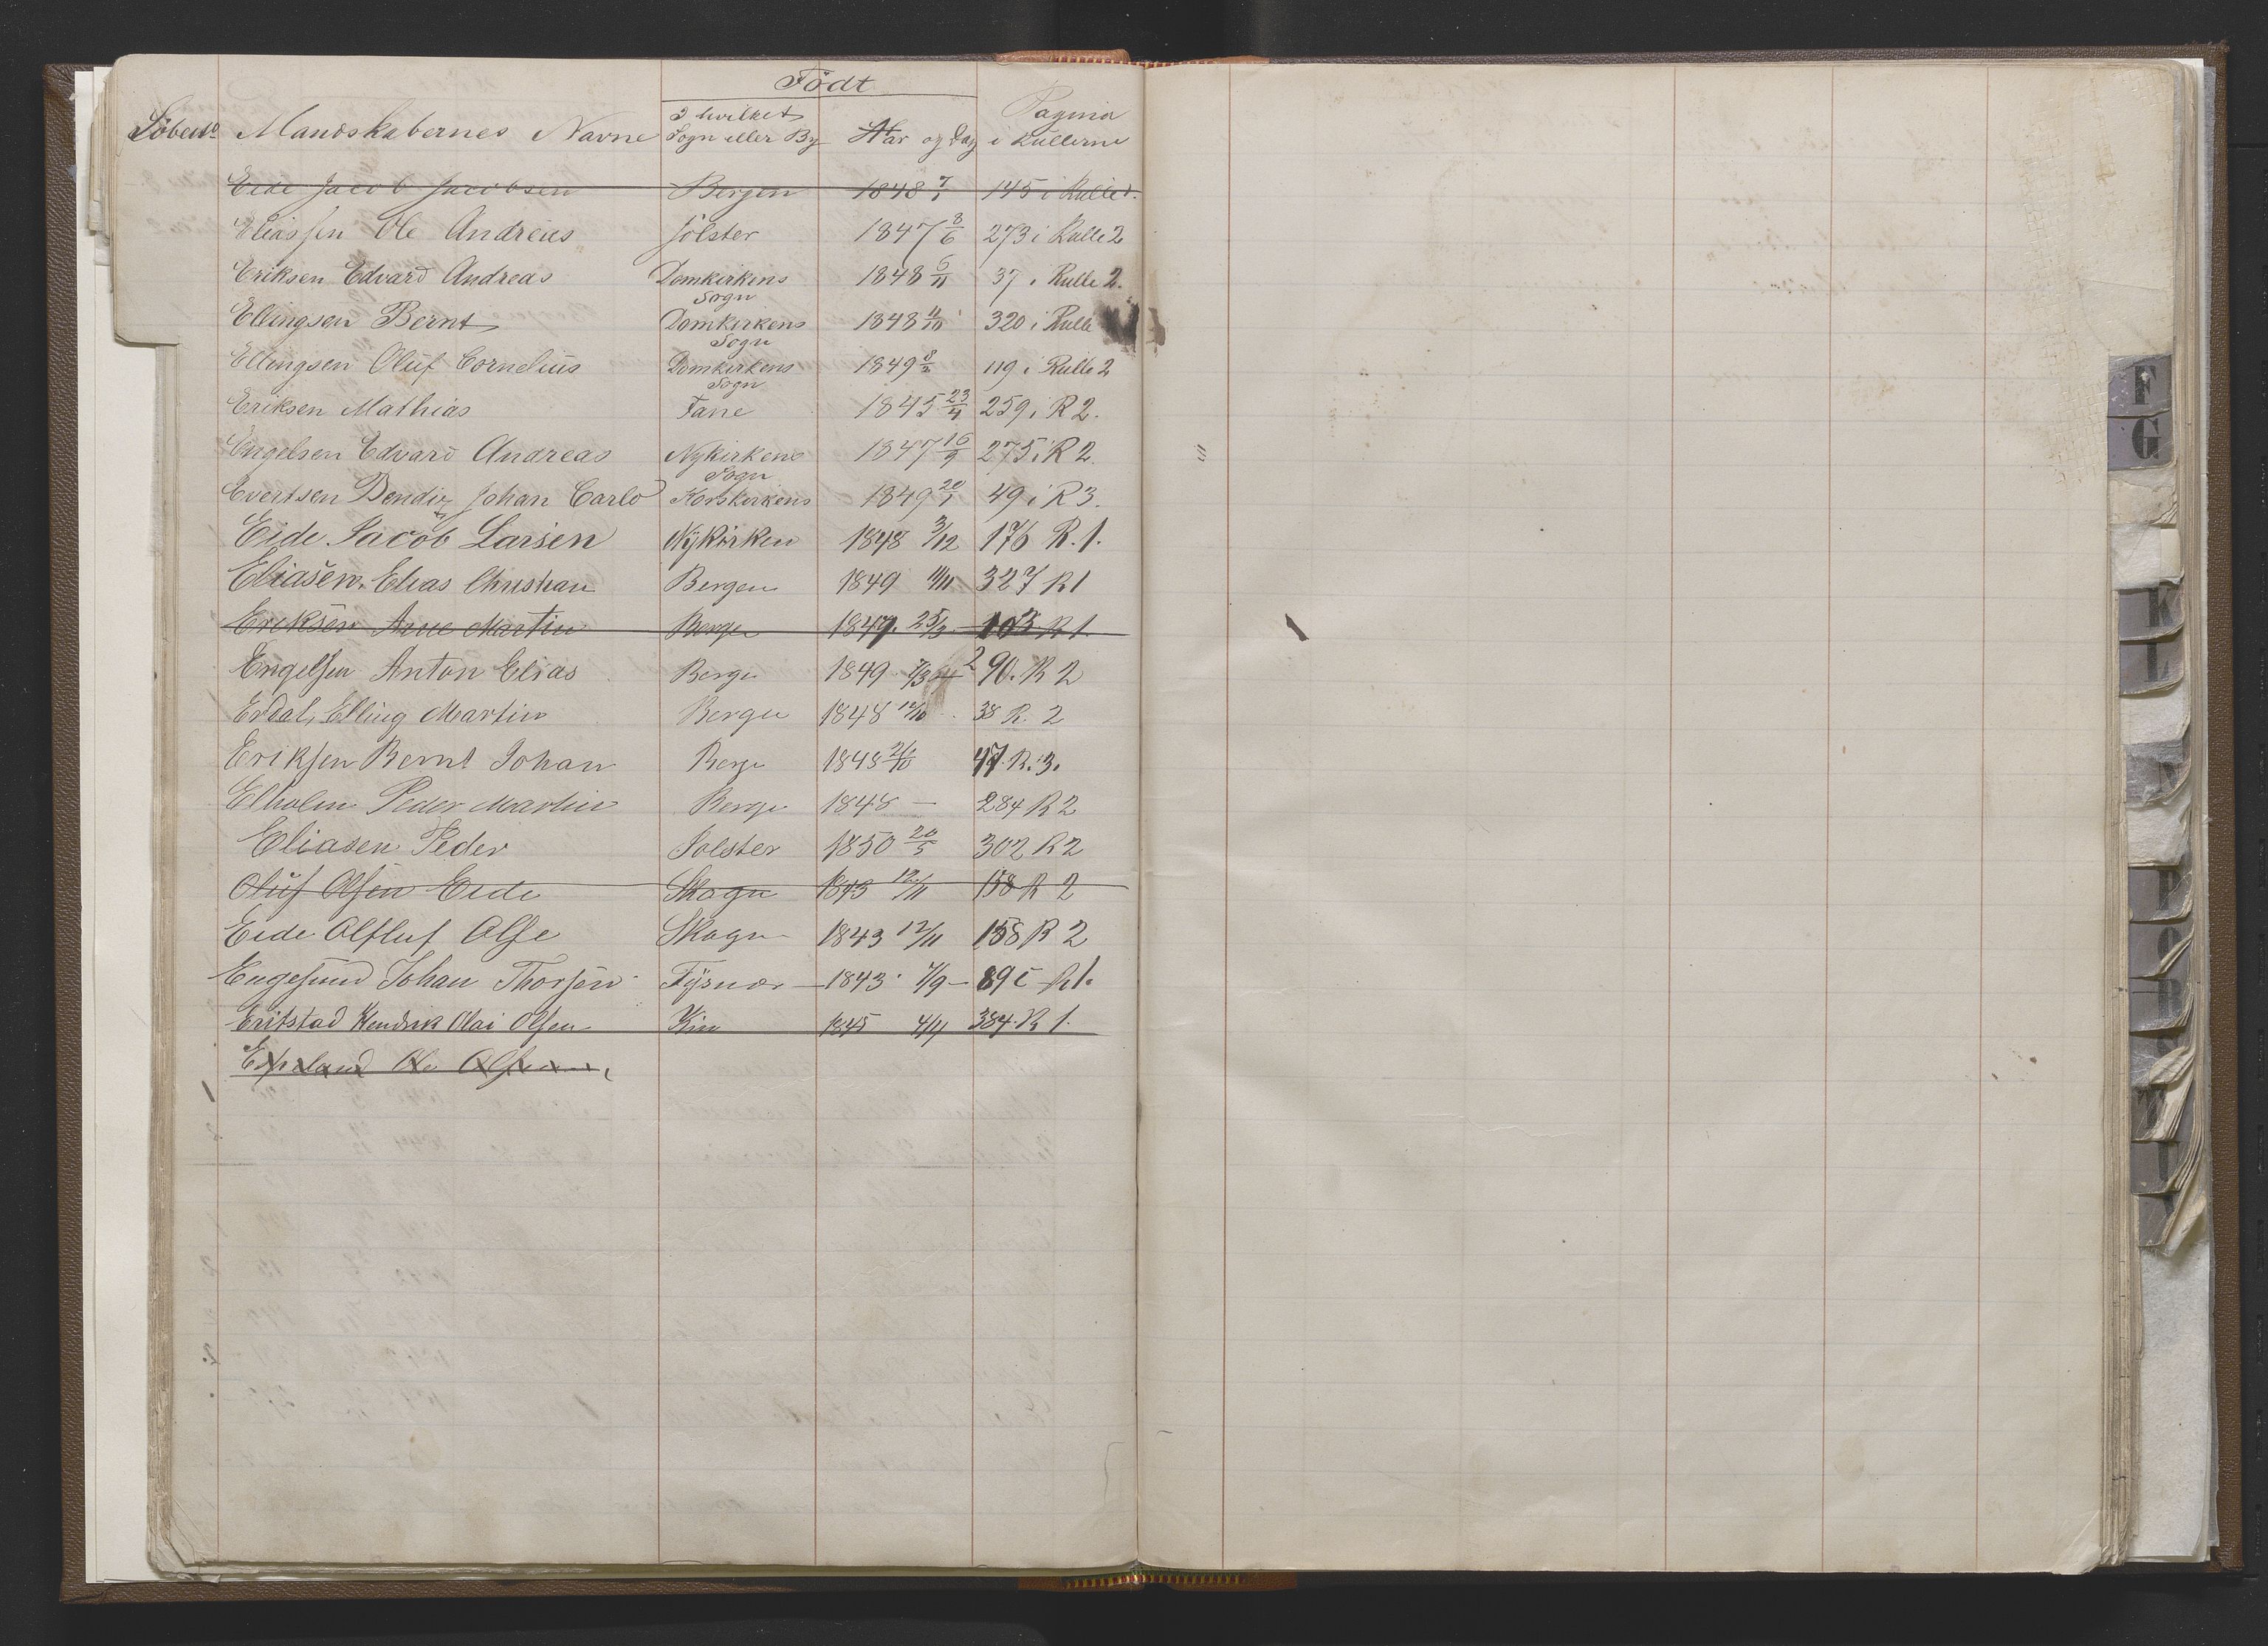 Födt
Löbend Mandskabernes Navne I hvilket Sogn eller By Aar og Dag Pagina i Rullerne
Eide Jacob Jacobsen Bergen 1848 7/1 145 i Rulle 1.
Eliassen Ole Andreas Jölster 1847 8/6 273 i Rulle 2
Eriksen Edvard Andreas Domkirkens Sogn 1848 6/11 37 i Rulle 2.
Ellingsen Bernt Domkirkens Sogn 1848 11/10 320 i Rulle
Ellingsen Oluf Cornelius Domkirkens Sogn 1849 8/2 119 i Rulle 2
Eriksen Mathias Fane 1845 23/4 259 i R 2.
Engelsen Edvard Andreas Nykirkens Sogn 1847 16/9 275 i R 2.
Evertsen Johan Carlo Korskirkens 1849 20/1 49 i R 3.
Eide Jacob Larsen Nykirken 1848 3/12 176 R. 1.
Eliasen Elias Christian Bergen 1849 11/11 327 R 1
Eriksen Arne Martin Bergen 1847. 25/3 103 R 1.
Engelsen Anton Elias Bergen 1849 290. R 2
Erdal, Elling Martin Bergen 1848 12/10 38 R. 2
Eriksen Bernt Johan Bergen 1848 47. R. 3.
Elholm Peder Martin Bergen 1848 — 284 R 2
Eliasen Peder Jolster 1850 20/5 302 R 2
Oluf Olsen Eide Skogn 1843 12/11 158 R 2
Eide Olse Skogn 1843 12/11 158 R 2
Engesund Johan Thorsen Tysnæs — 1843 7/9 — 89 i R 1.
Eritstad Hendrik Olai Olsen Kin 1845 4/11 384. R 1.
Ole Olsen
F
G
K
L
N
P
R
S
T